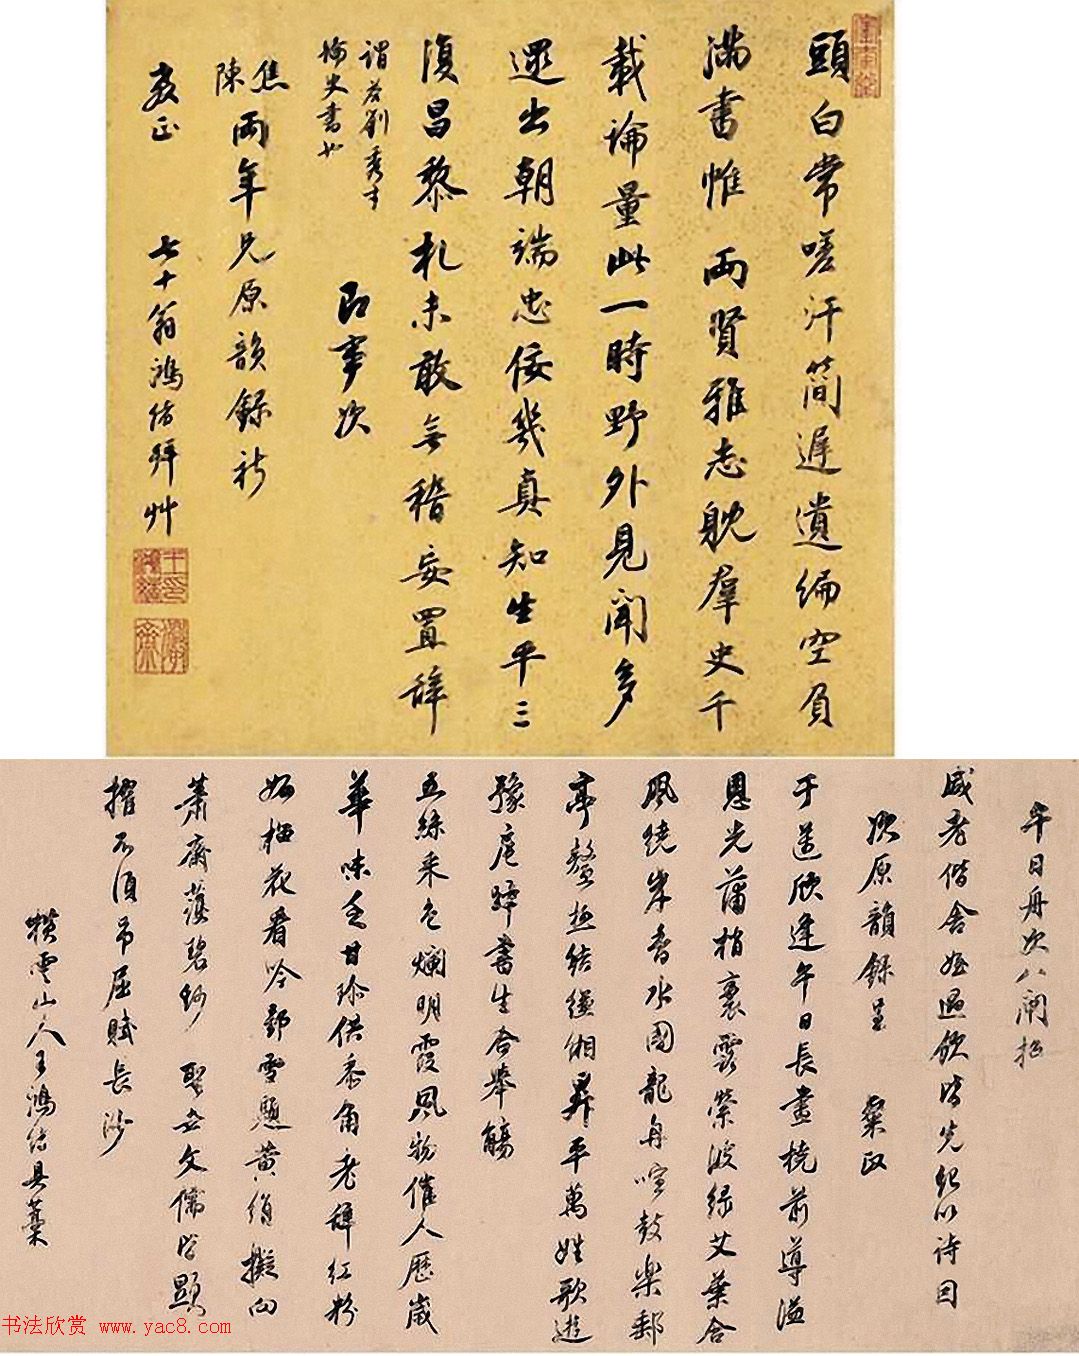 頭白常嗟汗簡遲遺編空負
滿書惟兩賢雅志躭羣史千
載論量此一時野外見聞多
還出朝端忠佞幾真知生平三
復昌黎札未敢無稽妄置辭
謂答劉秀才
論史書也
即事次
焦
陳
兩年兄原韻錄祈
教正
七十翁鴻緒拜艸
午日舟次八閘招
咸老偕舍姪過飲皆先紀以詩因
次原韻錄呈 粲政
于邁欣逢午日長畫橈前導溢
恩光蒲梢裛露縈波綠艾葉含
風繞岸香水國龍舟喧鼓樂郵
亭
結綵緗昇平萬姓歌遊
豫扈蹕書生合舉觴
五絲采色爛明霞風物催人歷歲
華味乏甘珍供黍角老辭紅粉
梅花看吟郢雪懸黃絹擬向
蕭齋護碧紗 聖世文儒皆顯
擢不須弔屈賦長沙
橫雲山人王鴻緒具藁
书法欣赏 www.yac8.com